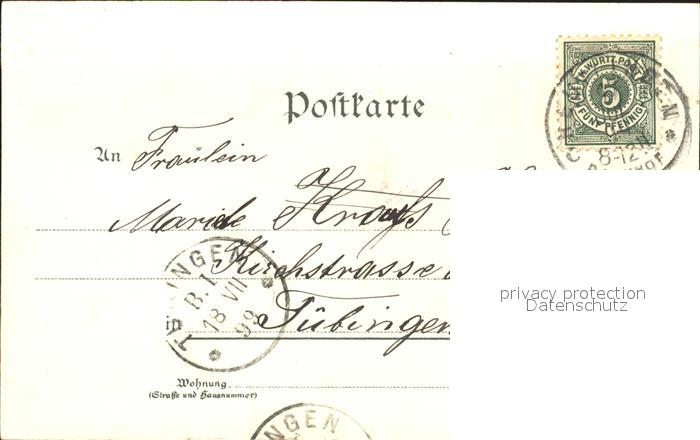 K. WÜRTT. POST
5
FÜNF PFENNIG
8-12
Postkarte
An Fräulein
Kirchstrasse
TÜBINGEN
B. I.
18 VII
99
in Tübingen
privacy protection
Datenschutz
Wohnung
(Straße und Hausnummer)
INGEN